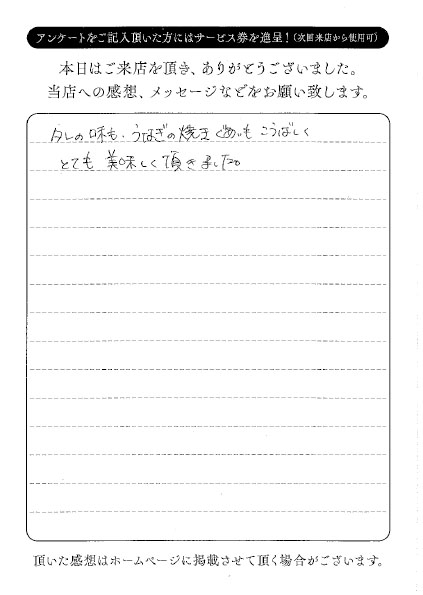 アンケートをご記入頂いた方にはサービス券を進呈！（次回来店から使用可）
本日はご来店を頂き、ありがとうございました。
当店への感想、メッセージなどをお願い致します。
タレの味も、うなぎの焼きぐあいもこうばしく
とても美味しく頂きました。
頂いた感想はホームページに掲載させて頂く場合がございます。